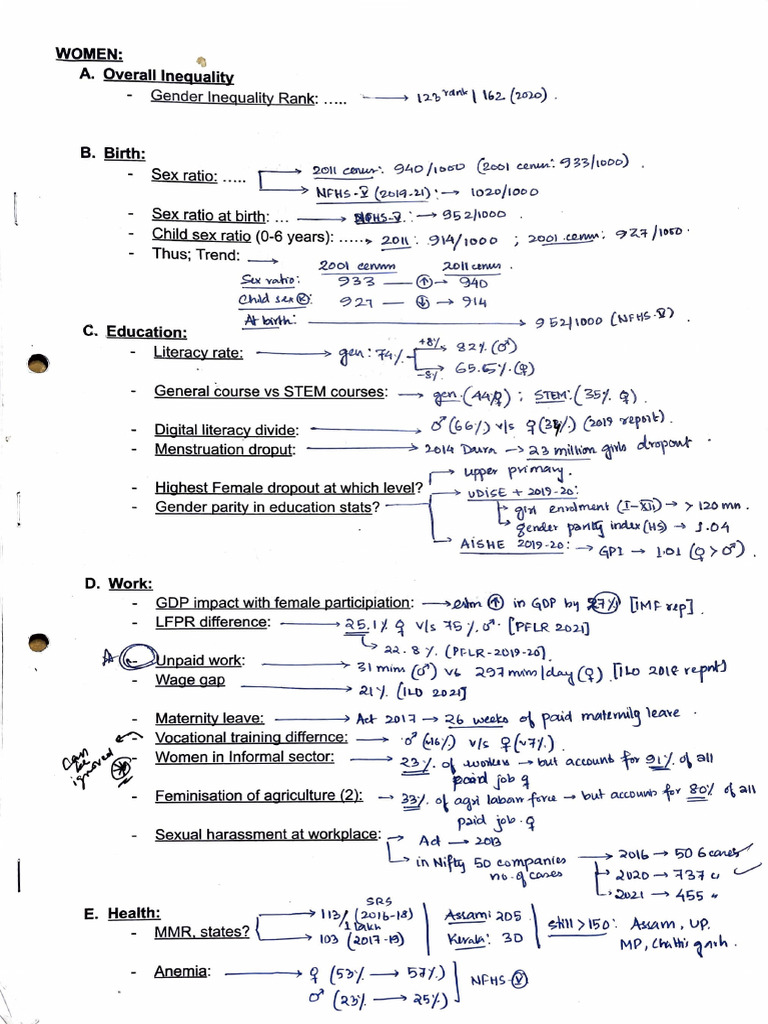 WOMEN:
A. Overall Inequality
- Gender Inequality Rank: ..... → 123 rank / 162 (2020).
B. Birth:
- Sex ratio: ..... → 2011 census: 940/1000 (2001 census: 933/1000).
→ NFHS-V (2019-21): → 1020/1000
- Sex ratio at birth: ... → NFHS-V: → 952/1000.
- Child sex ratio (0-6 years): ..... → 2011: 914/1000 ; 2001 census: 927/1000.
- Thus; Trend: → 2001 census 2011 census.
Sex ratio: 933 — ↑ → 940
Child sex R: 927 — ↓ → 914
At birth: → 952/1000 (NFHS-V).
C. Education:
- Literacy rate: → gen: 74% +8% → 82% (♂)
-8% → 65.5% (♀)
- General course vs STEM courses: → gen. (44% ♀) ; STEM: (35% ♀).
- Digital literacy divide: → ♂ (66%) v/s ♀ (34%) (2019 report).
- Menstruation droput: → 2014 Dasra → 23 million girls dropout.
→ upper primary.
- Highest Female dropout at which level?
→ UDISE + 2019-20:
- Gender parity in education stats? → girl enrolment (I-XII) → > 120 mn.
→ gender parity index (HS) → 1.04
→ AISHE 2019-20: → GPI → 1.01 (♀ > ♂).
D. Work:
- GDP impact with female participiation: → ↑ in GDP by 27% [IMF rep].
- LFPR difference: → 25.1% ♀ v/s 75% ♂. [PFLR 2021]
→ 22.8% (PFLR-2019-20).
- Unpaid work: → 31 mins (♂) vs 297 mins/day (♀) [ILO 2018 report]
- Wage gap → 21% [ILO 2021]
- Maternity leave: → Act 2017 → 26 weeks of paid maternity leave.
- Vocational training differnce: → ♂ (~16%) v/s ♀ (~7%).
can be ignored
- Women in Informal sector: → 23% of workers → but accounts for 91% of all
paid job ♀
- Feminisation of agriculture (2): → 33% of agri labour force → but accounts for 80% of all
paid job. ♀
- Sexual harassment at workplace: → Act → 2013
→ in Nifty 50 companies no. of cases → 2016 → 506 cases
→ 2020 → 737 "
→ 2021 → 455 "
E. Health:
SRS
→ 113/1 lakh (2016-18) | Assam: 205 | still >150: Assam, UP,
- MMR, states? → 103 (2017-19) | Kerala: 30 | MP, Chattisgarh.
- Anemia: → ♀ (53% → 57%) NFHS-V
♂ (23% → 25%)